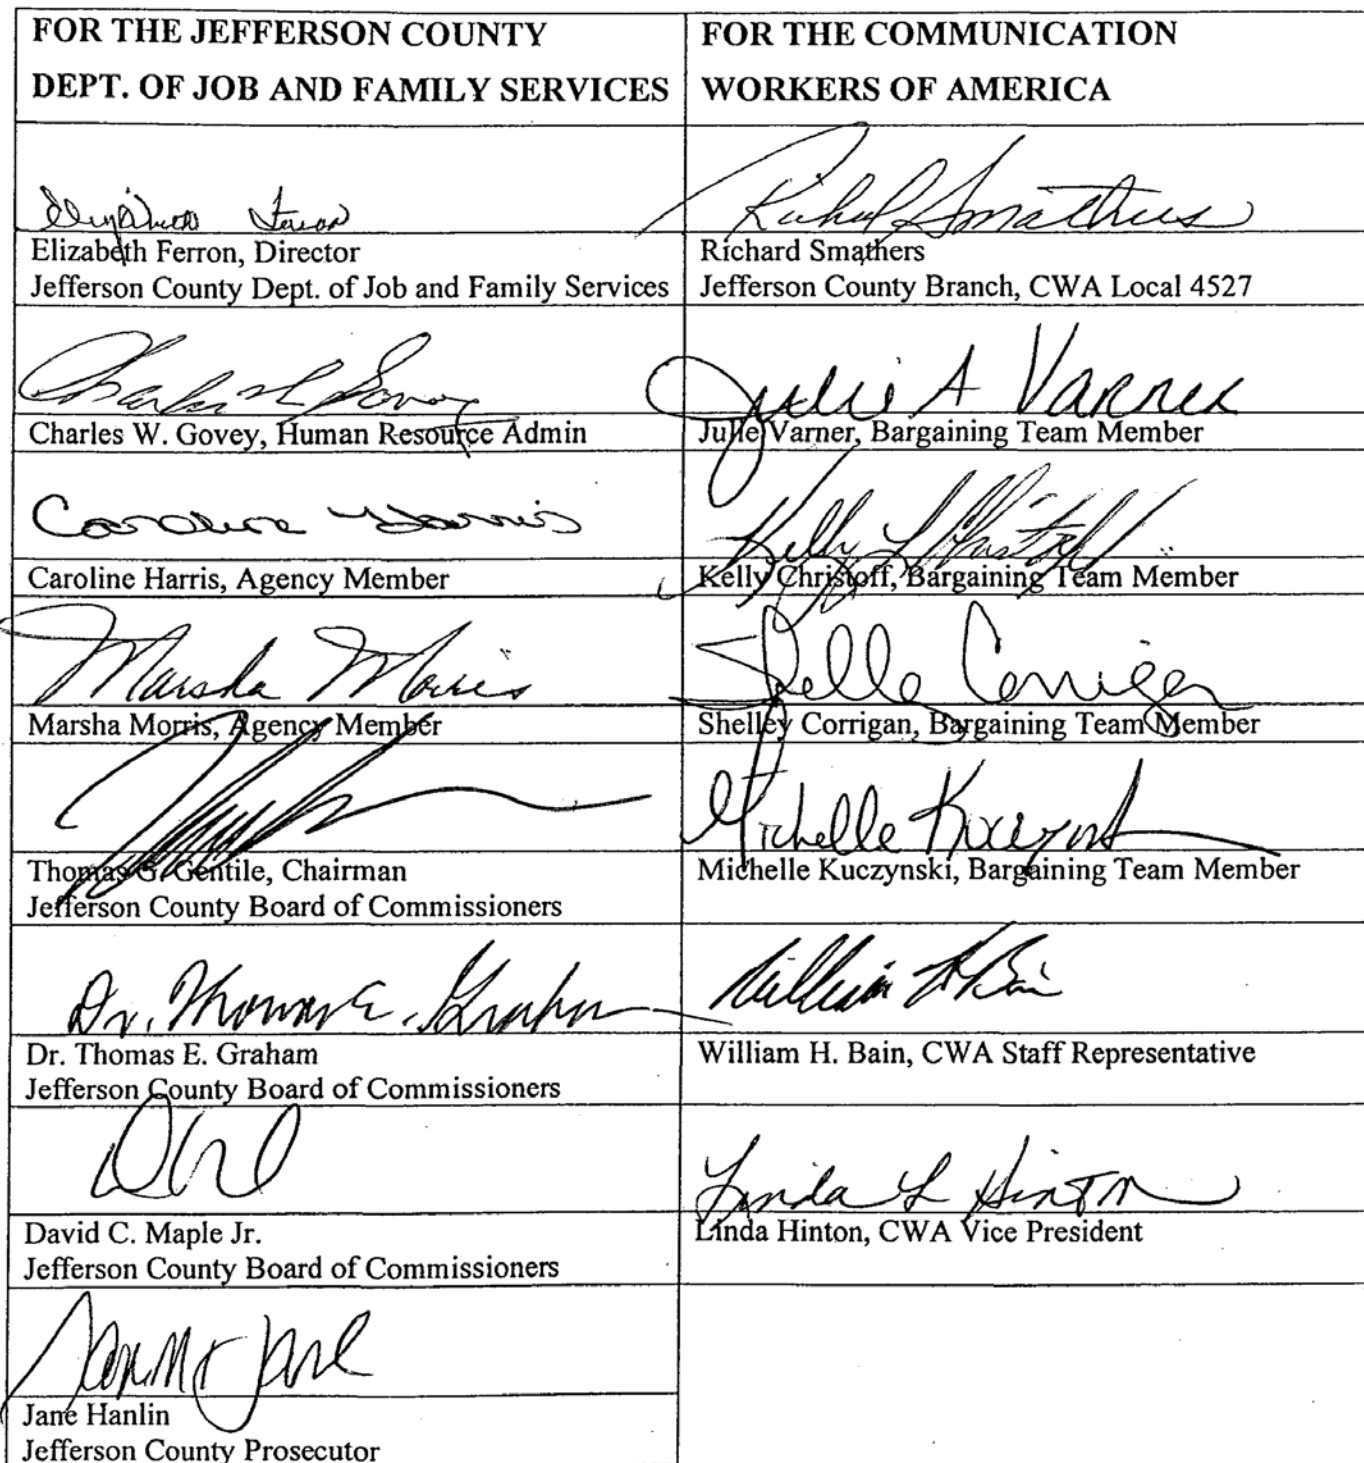 FOR THE JEFFERSON COUNTY
DEPT. OF JOB AND FAMILY SERVICES
FOR THE COMMUNICATION
WORKERS OF AMERICA
Elizabeth Ferron, Director
Jefferson County Dept. of Job and Family Services
Richard Smathers
Richard Smathers
Jefferson County Branch, CWA Local 4527
Charles W. Govey, Human Resource Admin
Julie A Varner
Julie Varner, Bargaining Team Member
Caroline Harris
Caroline Harris, Agency Member
Kelly L Christoff
Kelly Christoff, Bargaining Team Member
Marsha Morris
Marsha Morris, Agency Member
Shelley Corrigan, Bargaining Team Member
Thomas G. Gentile, Chairman
Jefferson County Board of Commissioners
Michelle Kuczynski, Bargaining Team Member
Dr. Thomas E. Graham
Dr. Thomas E. Graham
Jefferson County Board of Commissioners
William H Bain
William H. Bain, CWA Staff Representative
David C. Maple Jr.
Jefferson County Board of Commissioners
Linda L Hinton
Linda Hinton, CWA Vice President
Jane Hanlin
Jefferson County Prosecutor